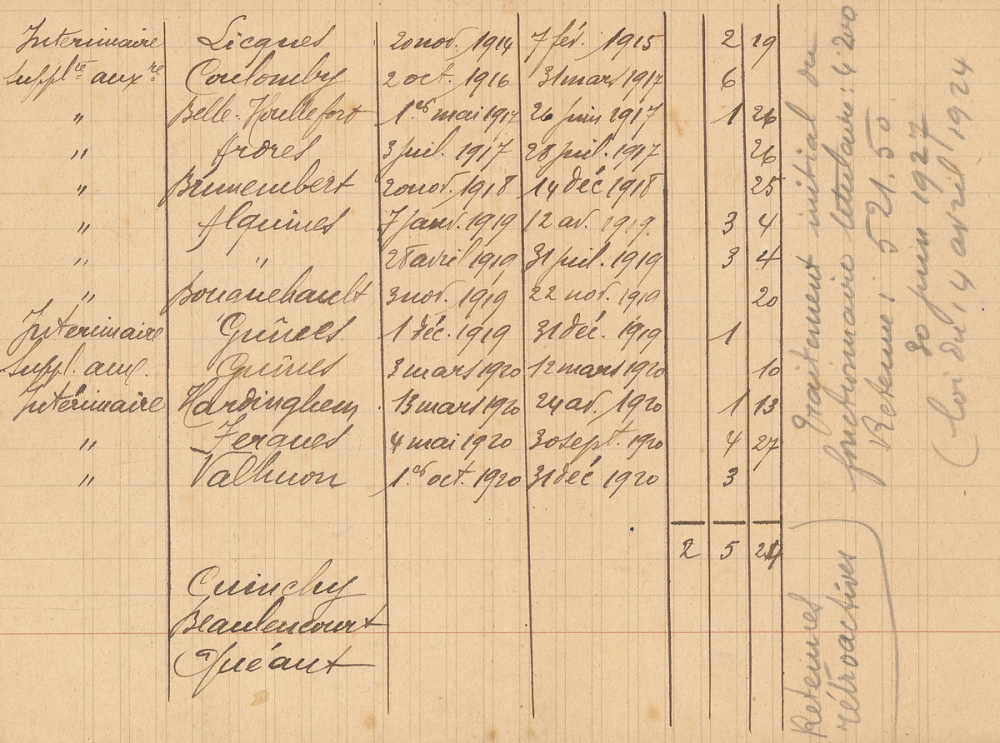 Intérimaire Licques 20 nov. 1914 7 fév. 1915 2 19
Supplce auxre Coulomby 2 oct. 1916 31 mars 1917 6
" Belle-Houllefort 1er mai 1917 26 juin 1917 1 26
" Ardres 3 juil. 1917 28 juil. 1917 26
" Brunembert 20 nov. 1918 14 déc 1918 25
" Alquines 7 janv. 1919 12 av. 1919 3 4
" " 28 avril 1919 31 juil. 1919 3 4
" Bouquehault 3 nov. 1919 22 nov. 1919 20
Intérimaire Guînes 1 déc. 1919 31 déc. 1919 1
Suppl. aux. Guînes 3 mars 1920 12 mars 1920 10
Intérimaire Hardinghem 13 mars 1920 24 av. 1920 1 13
" Ferques 4 mai 1920 30 sept. 1920 4 27
" Valhuon 1er oct. 1920 31 déc 1920 3
2 5 24
Cuinchy
Beaulencourt
Quéant
Retenues
rétroactives
traitement initial du
fonctionnaire titulaire: 4.200
Retenue: 521.50
30 juin 1927
(loi du 14 avril 1924